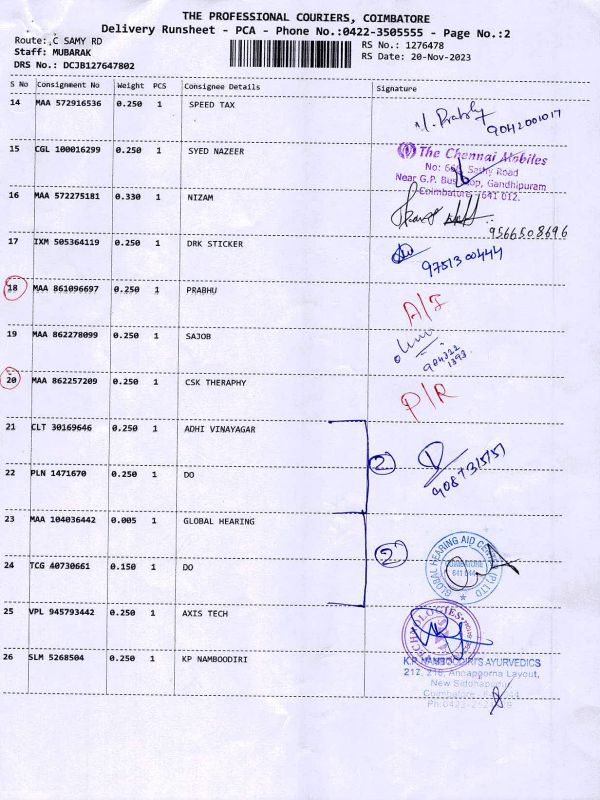 THE PROFESSIONAL COURIERS, COIMBATORE
Delivery Runsheet - PCA - Phone No.:0422-3505555 - Page No.:2
Route: C SAMY RD
Staff: MUBARAK
DRS No.: DCJB127647802
RS No.: 1276478
RS Date: 20-Nov-2023
S No Consignment No Weight PCS Consignee Details Signature
14 MAA 572916536 0.250 1 SPEED TAX
9042001017
15 CGL 100016299 0.250 1 SYED NAZEER
The Chennai Mobiles
No: Sathy Road
Near G.P. Bus Stop, Gandhipuram
Coimbatore - 641 012.
16 MAA 572275181 0.330 1 NIZAM
9566508696
17 IXM 505364119 0.250 1 DRK STICKER
9751300444
18 MAA 861096697 0.250 1 PRABHU
A/I
19 MAA 862278099 0.250 1 SAJOB
20 MAA 862257209 0.250 1 CSK THERAPHY
P/R
21 CLT 30169646 0.250 1 ADHI VINAYAGAR
2
22 PLN 1471670 0.250 1 DO
23 MAA 104036442 0.005 1 GLOBAL HEARING
2
24 TCG 40730661 0.150 1 DO
GLOBAL HEARING AID CENTRE (P) LTD
COIMBATORE
25 VPL 945793442 0.250 1 AXIS TECH
26 SLM 5268504 0.250 1 KP NAMBOODIRI
K.P. NAMBOODIRI'S AYURVEDICS
217, 218, Annapporna Layout,
New Siddhapudur
Coimbatore